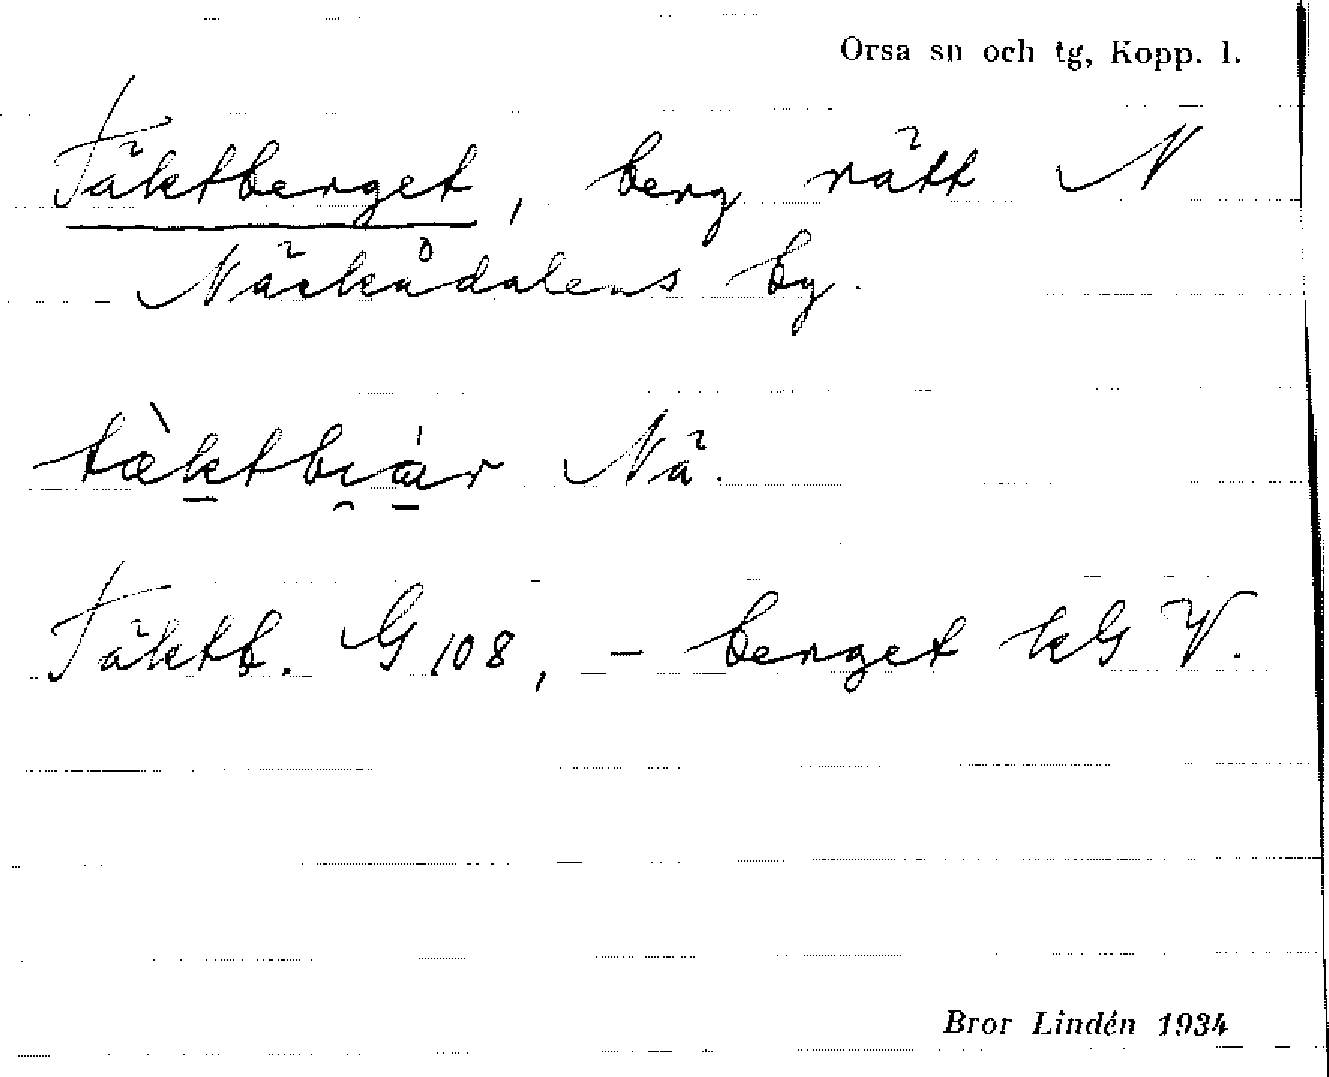 Orsa sn och tg, Kopp. l.
Täktberget, berg rätt N
Näckådalens by.
tæ̀ktbi̯ár Nä.
Täktb. G 108, – berget kG V.
Bror Lindén 1934